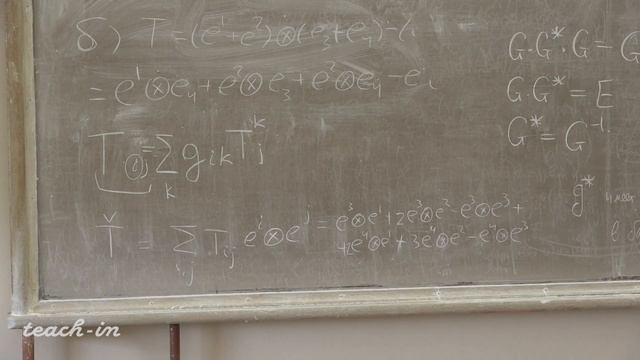 б) T = (e¹ + e³) ⊗ (e₃ + e₄) −
= e¹ ⊗ e₄ + e³ ⊗ e₃ + e³ ⊗ e₄ − e
T_{ij} = Σ_k g_{ik} T_j^k
Ť = Σ_{i,j} T_{ij} e^i ⊗ e^j = e³⊗e¹ + 2e³⊗e² − e³⊗e³ +
+ 2e⁴⊗e¹ + 3e⁴⊗e² − e⁴⊗e³
G·G*·G = G
G·G* = E
G* = G⁻¹
g*
teach-in